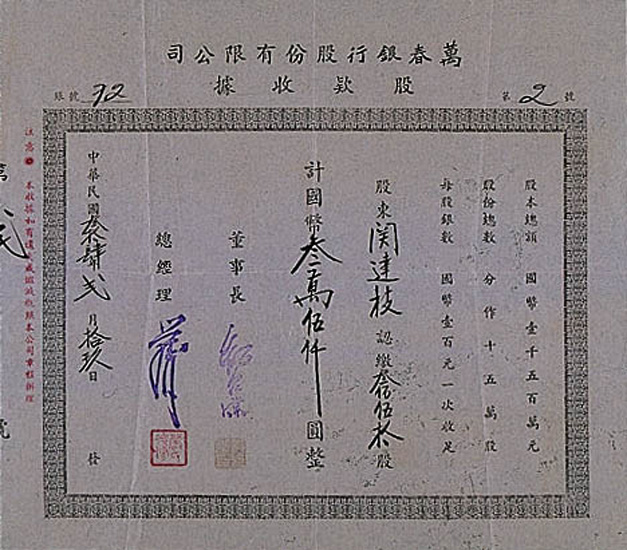 萬春銀行股份有限公司
股欵收據
第 2 號
號 92
股本總額 國幣壹千五百萬元
股份總數 分作十五萬股
每股銀數 國幣壹百元一次收足
股東 関達枝 認繳 叁伍拾 股
計國幣叁萬伍仟圓整
董事長
總經理
中華民國 肆 弍 月 拾玖 日 發
注意 本收據如有遺失或毀滅 照本公司章程辦理
第 弍 號